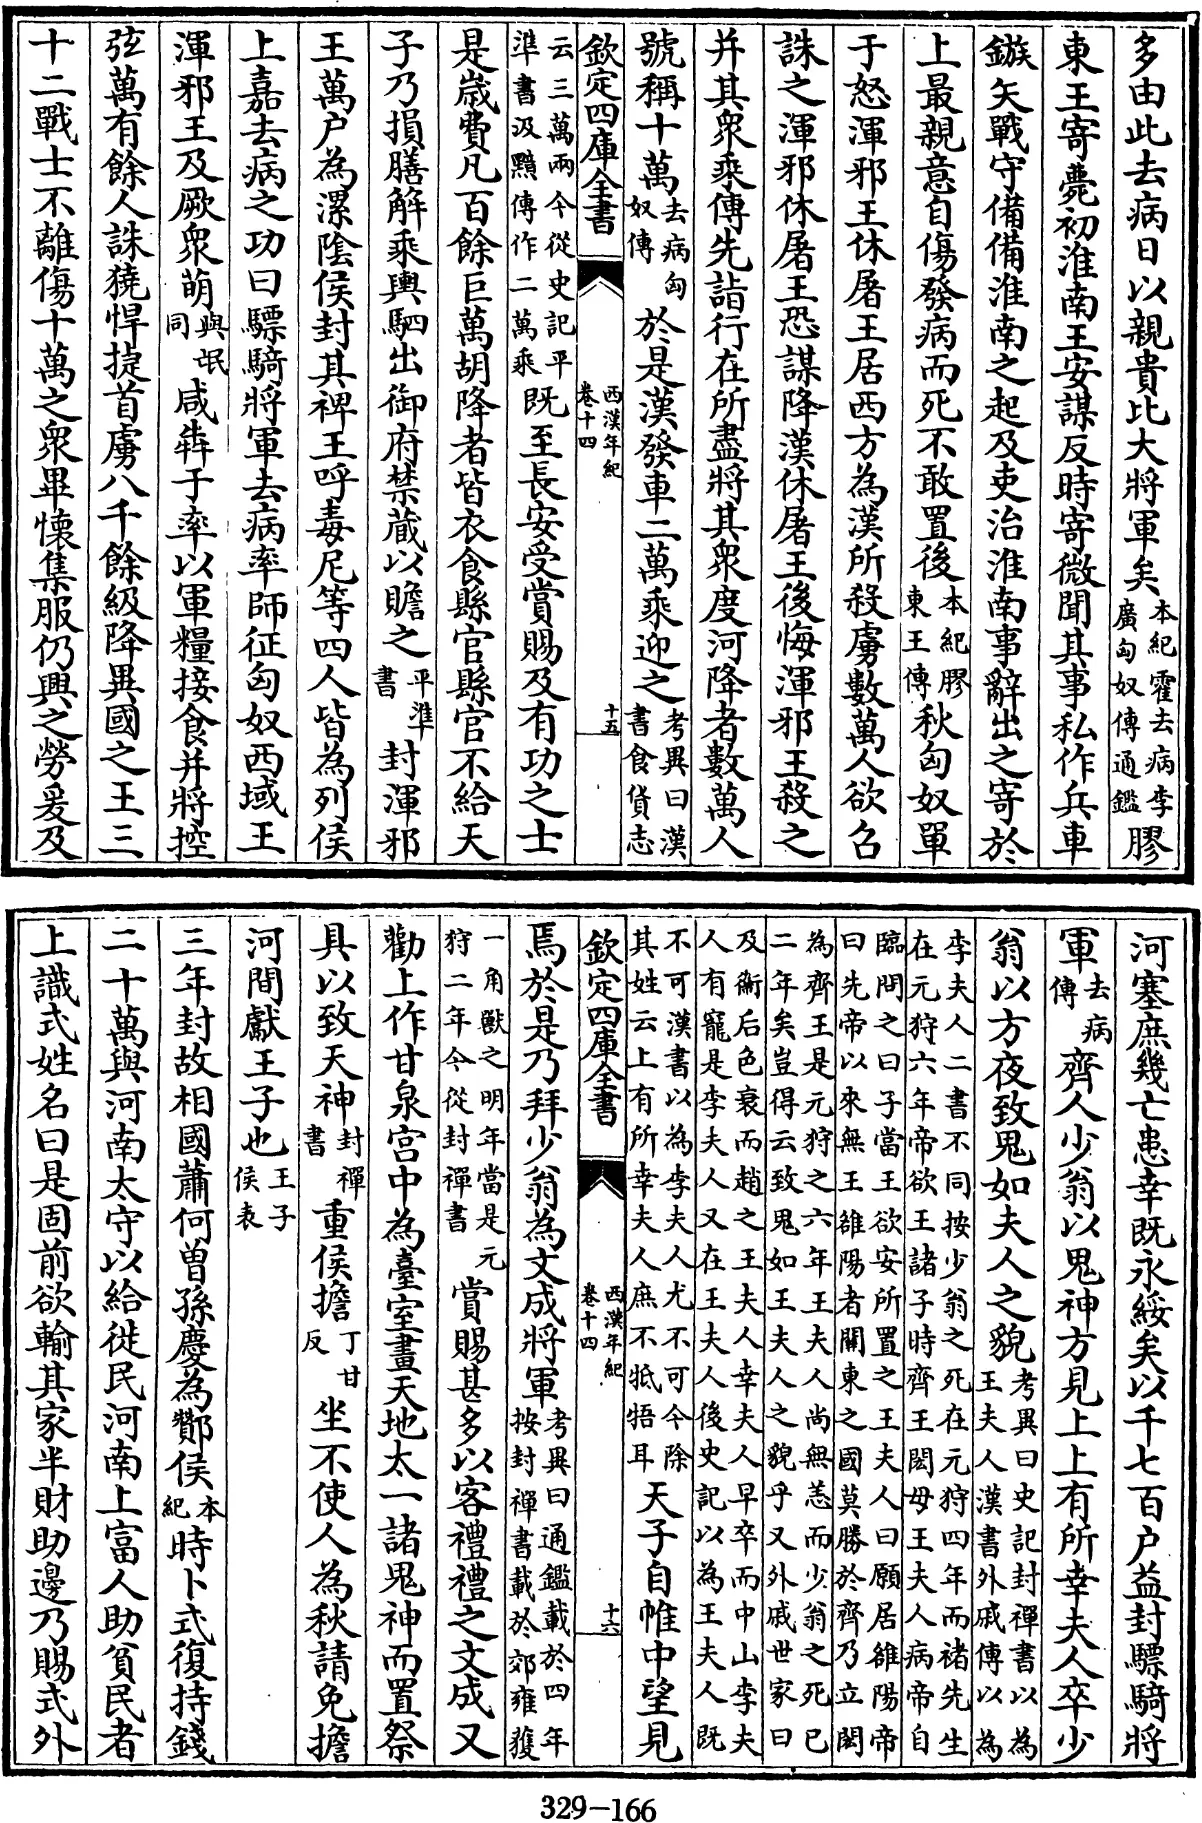 多由此去病日以親貴比大將軍矣本紀霍去病李廣匈奴傳通鑑膠
東王寄薨初淮南王安謀反時寄微聞其事私作兵車
鏃矢戰守備備淮南之起及吏治淮南事辭出之寄於
上最親意自傷發病而死不敢置後本紀膠東王傳秋匈奴單
于怒渾邪王休屠王居西方為漢所殺虜數萬人欲召
誅之渾邪休屠王恐謀降漢休屠王後悔渾邪王殺之
并其衆乘傳先詣行在所盡將其衆度河降者數萬人
號稱十萬去病匈奴傳於是漢發車二萬乘迎之考異曰漢書食貨志
欽定四庫全書 西漢年紀卷十四 十五
云三萬兩今從史記平準書汲黯傳作二萬乘既至長安受賞賜及有功之士
是歲費凡百餘巨萬胡降者皆衣食縣官縣官不給天
子乃損膳解乘輿駟出御府禁藏以贍之平準書封渾邪
王萬户為漯陰侯封其裨王呼毒尼等四人皆為列侯
上嘉去病之功曰驃騎將軍去病率師征匈奴西域王
渾邪王及厥衆萌與氓同咸犇于率以軍糧接食并將控
弦萬有餘人誅獟悍捷首虜八千餘級降異國之王三
十二戰士不離傷十萬之衆畢懷集服仍興之勞爰及
河塞庶幾亡患幸既永綏矣以千七百户益封驃騎將
軍去病傳齊人少翁以鬼神方見上上有所幸夫人卒少
翁以方夜致鬼如夫人之貌考異曰史記封禪書以為王夫人漢書外戚傳以為
李夫人二書不同按少翁之死在元狩四年而褚先生在元狩六年帝欲王諸子時齊王閎母王夫人病帝自
臨問之曰子當王欲安所置之王夫人曰願居雒陽帝曰先帝以來無王雒陽者關東之國莫勝於齊乃立閎
為齊王是元狩之六年王夫人尚無恙而少翁之死已二年矣豈得云致鬼如王夫人之貌乎又外戚世家曰
及衞后色衰而趙之王夫人幸夫人早卒而中山李夫人有寵是李夫人又在王夫人後史記以為王夫人既
不可漢書以為李夫人尤不可今除其姓云上有所幸夫人庶不牴牾耳天子自帷中望見
欽定四庫全書 西漢年紀卷十四 十六
焉於是乃拜少翁為文成將軍考異曰通鑑載於四年按封禪書載於郊雍獲
一角獸之明年當是元狩二年今從封禪書賞賜甚多以客禮禮之文成又
勸上作甘泉宫中為臺室畫天地太一諸鬼神而置祭
具以致天神封禪書重侯擔丁甘反坐不使人為秋請免擔
河間獻王子也王子侯表
三年封故相國蕭何曽孫慶為酇侯本紀時卜式復持錢
二十萬與河南太守以給徙民河南上富人助貧民者
上識式姓名曰是固前欲輸其家半財助邊乃賜式外
329-166